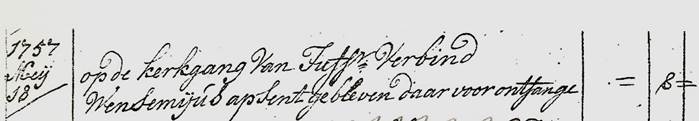 1757
Meij op de kerkgang Van Juffr. Verbind
18 Wensemijus apsent gebleven daar voor ontfange = 8 =